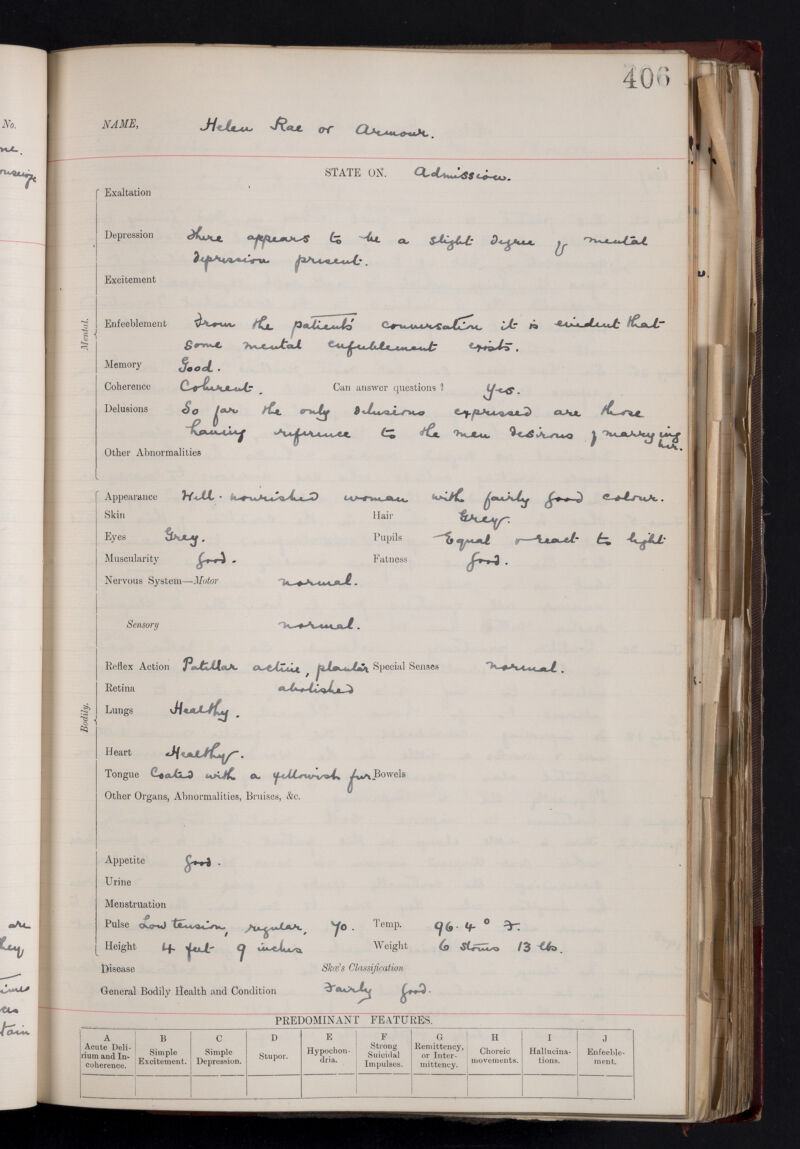 406
No.
NAME, Helen Rae or Armour.
STATE ON. Admission.
Mental.
Exaltation
Depression There appears to be a slight degree of mental
depression present.
Excitement
Enfeeblement From the patients' conversation it is evident that
some mental enfeeblement exists.
Memory Good.
Coherence Coherent. Can answer questions? Yes.
Delusions So far the only delusions expressed are those
having reference to the men desirous of marrying
her.
Other Abnormalities
Bodily.
Appearance Well-nourished woman with fairly good colour.
Skin Hair Grey.
Eyes Grey. Pupils Equal & react to light
Muscularity Good. Fatness Good.
Nervous System—Motor normal.
Sensory normal.
Reflex Action Patellar active, plantar Special Senses normal.
Retina abolished
Lungs Healthy.
Heart Healthy.
Tongue Coated with a yellowish fur. Bowels
Other Organs, Abnormalities, Bruises, &c.
Appetite Good.
Urine
Menstruation
Pulse Low tension, regular, 70. Temp. 96.4° F.
Height 4 feet 9 inches Weight 6 stones 13 lbs.
Disease Skae's Classification
General Bodily Health and Condition Fairly good.
PREDOMINANT FEATURES.
A B C D E F G H I J
Acute Delirium and Incoherence. Simple Excitement. Simple Depression. Stupor. Hypochondria. Strong Suicidal Impulses. Remittency, or Intermittency. Choreic movements. Hallucinations. Enfeeblement.